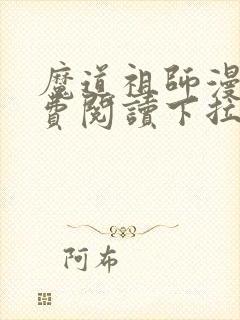 魔道祖師漫
費閱讀下拉
阿布